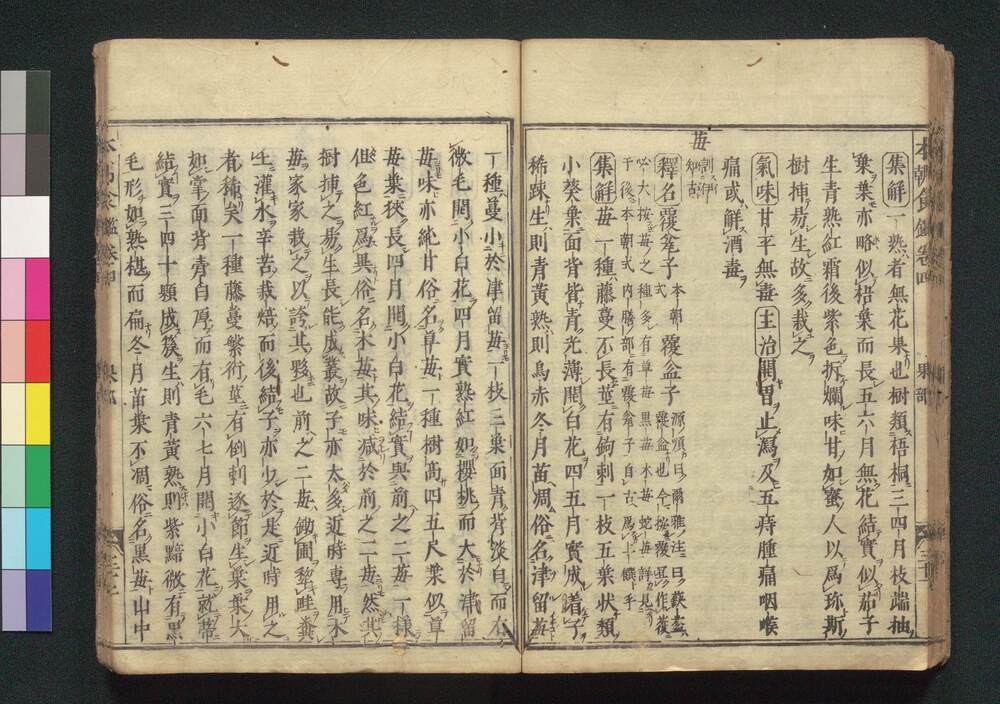 集解一熟者無花果也樹類梧桐三四月枝端抽
葉葉亦略似梧葉而長五六月無花結實似茄子
生青熟紅霜後紫色拆爛味甘如蜜人以爲珍斯
樹挿易生故多栽之
氣味甘平無毒主治開胃止瀉及五痔腫痛咽喉
痛或解酒毒
苺
訓如古
釋名覆盆子本朝式覆盆子
必大按苺之種多有草苺黒苺木苺蛇苺
集解苺一種藤蔓不長莖有鉤刺一枝五葉状類
小葵葉面背皆青光薄開白花四五月實成諸子
稀踈生則青黄熟則烏赤冬月苗凋俗名津留苺
一種蔓小於津留苺一枝三葉面青背淡白而有
微毛開小白花四月實熟紅如櫻桃而大於津留
苺味亦純甘俗名草苺一種樹高四五尺葉似草
苺葉狹長四月開小白花結實與前之二苺一様
但色紅爲異俗名木苺其味减於前之二苺然其
樹挿之易生長能成叢故子亦太多近時専用木
苺家家栽之以誇其夥也前之二苺鋤圃犂畦糞
生灌水辛苦栽焙而後結子亦少於是近時用之
者稀矣一種藤蔓繁衍莖有倒刺逐節生葉葉大
如掌面背青白厚而有毛六七月開小白花就蒂
結實三四十顆成簇生則青黄熟則紫黯微有黒
毛形如熟椹而扁冬月苗葉不凋俗名黒苺山中
本朝食鑑卷四
果部